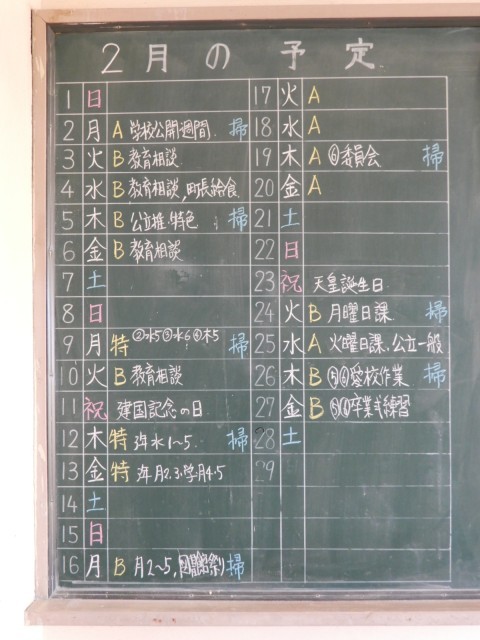 2月の予定
1 日
2 月 A 学校公開週間 掃
3 火 B 教育相談
4 水 B 教育相談,町長給食
5 木 B 公立推・特色 掃
6 金 B 教育相談
7 土
8 日
9 月 特 ②水5③水6④木5 掃
10 火 B 教育相談
11 祝 建国記念の日
12 木 特 水1~5 掃
13 金 特 月2.3 学 月4.5
14 土
15 日
16 月 B 月2~5, 祭り 掃
17 火 A
18 水 A
19 木 A ⑥委員会 掃
20 金 A
21 土
22 日
23 祝 天皇誕生日
24 火 B 月曜日課 掃
25 水 A 火曜日課,公立一般
26 木 B ⑤⑥愛校作業 掃
27 金 B ⑤⑥卒業式練習
28 土
29